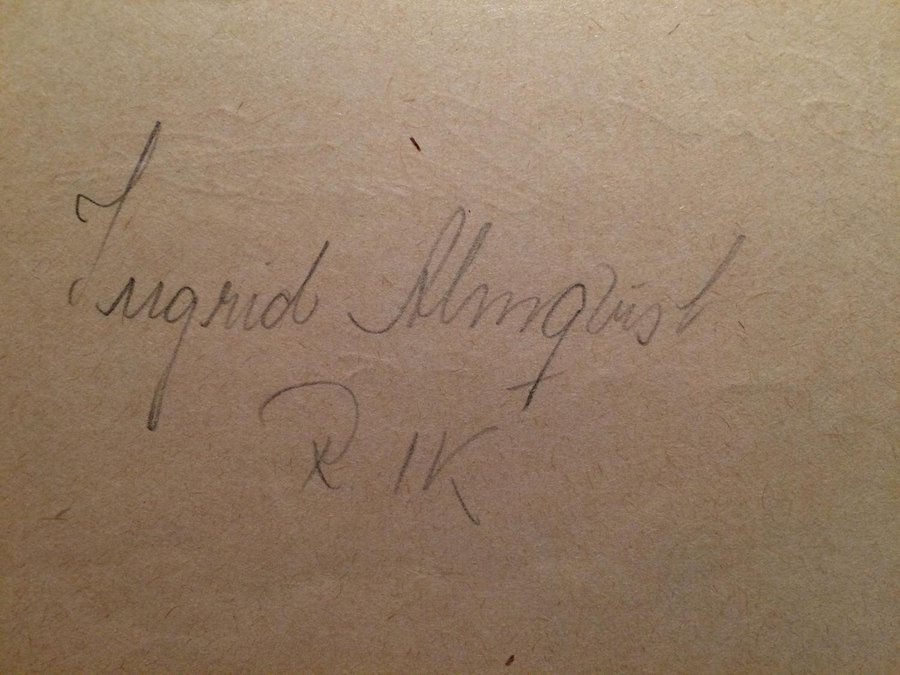 Ingrid Almqvist
R IK